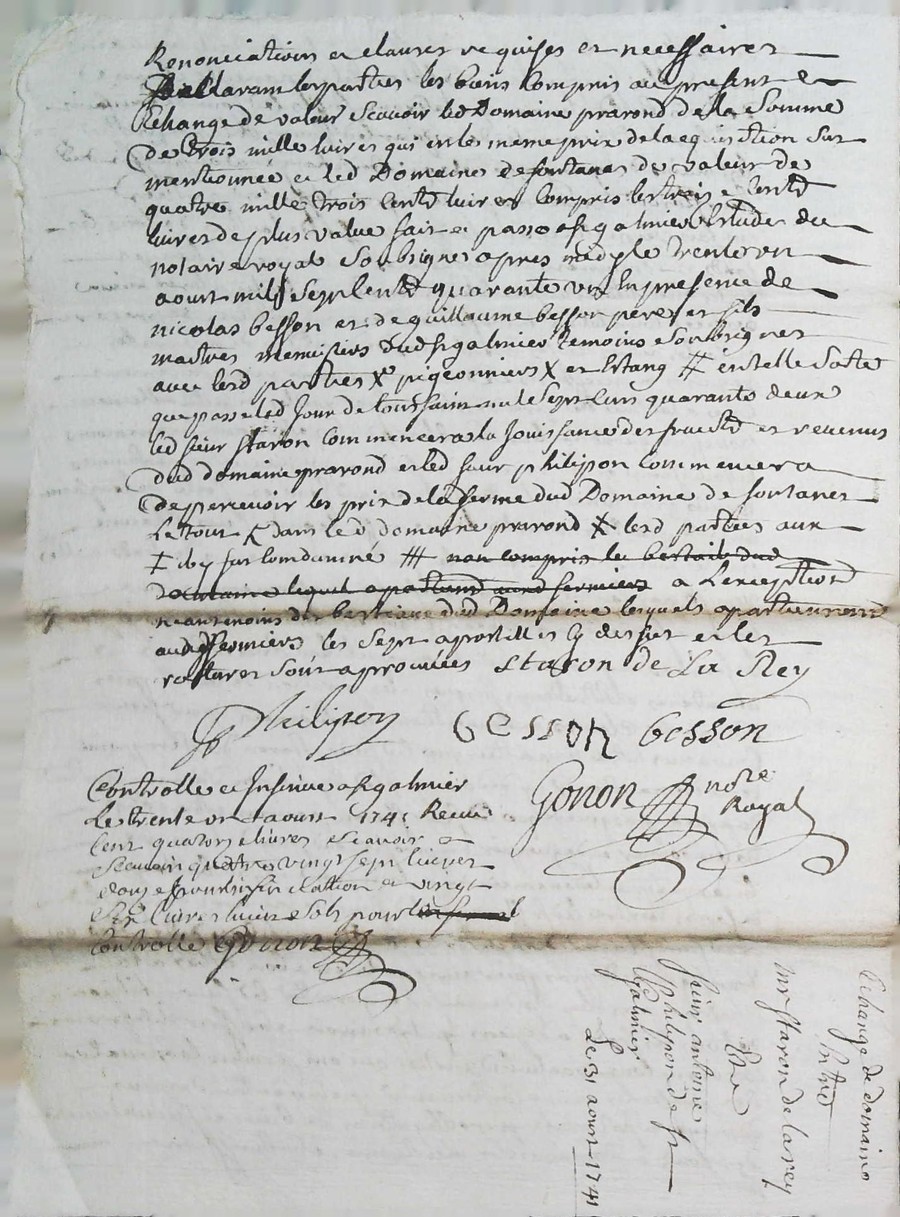 Renonciations et clauses requises et necessaires
declarant les parties les biens compris au present
Echange de valeur scavoir led Domaine prarond de la somme
de trois mille livres qui est le meme prix de lacquisition sus
mentionnée et led Domaine de fontanes de valeur de
quatre mille trois cents livres compris les treize cents
livres de plus value fait et passé a st galmier Etude du
notaire royal soubsigné apres midy le trente un
aoust mil sept cents quarante un En presence de
nicolas besson et de guillaume besson pere et fils
maitres menuisiers dud st galmier temoins soubsignes
avec lesd parties X pigeonniers X et Estang # en telle sorte
que passé led jour de toussaint mil sept cens quarante deux
led sieur staron commencera la jouissance des fruits et revenus
dud domaine prarond et led sieur philipon commencera
de percevoir les prix de la ferme dud Domaine de fontanes
Le tout dans led domaine prarond X lesd parties aux
# non compris le bestail dud
domaine lequel apartient aux fermiers a Lexception
neantmoins des bestiaux dud Domaine lesquels apartiennent
auds fermiers les sept apostilles cy dessus et les
ratures sont aprouvées Staron de La Rey
Philipon besson besson
Gonon nore
Royal
Controllé et Insinué a st galmier
Le trente un aoust 1741 Receu
cent quatorze livres scavoir
scavoir quatre vingt sept livres
douze pour linsinuation et vingt
six livres huit sols pour
controlle Gonon
Echange de domaine
Entre
mr staron de la rey
Et le
sieur antoine
philipon de st
galmier
Le 31 aoust 1741